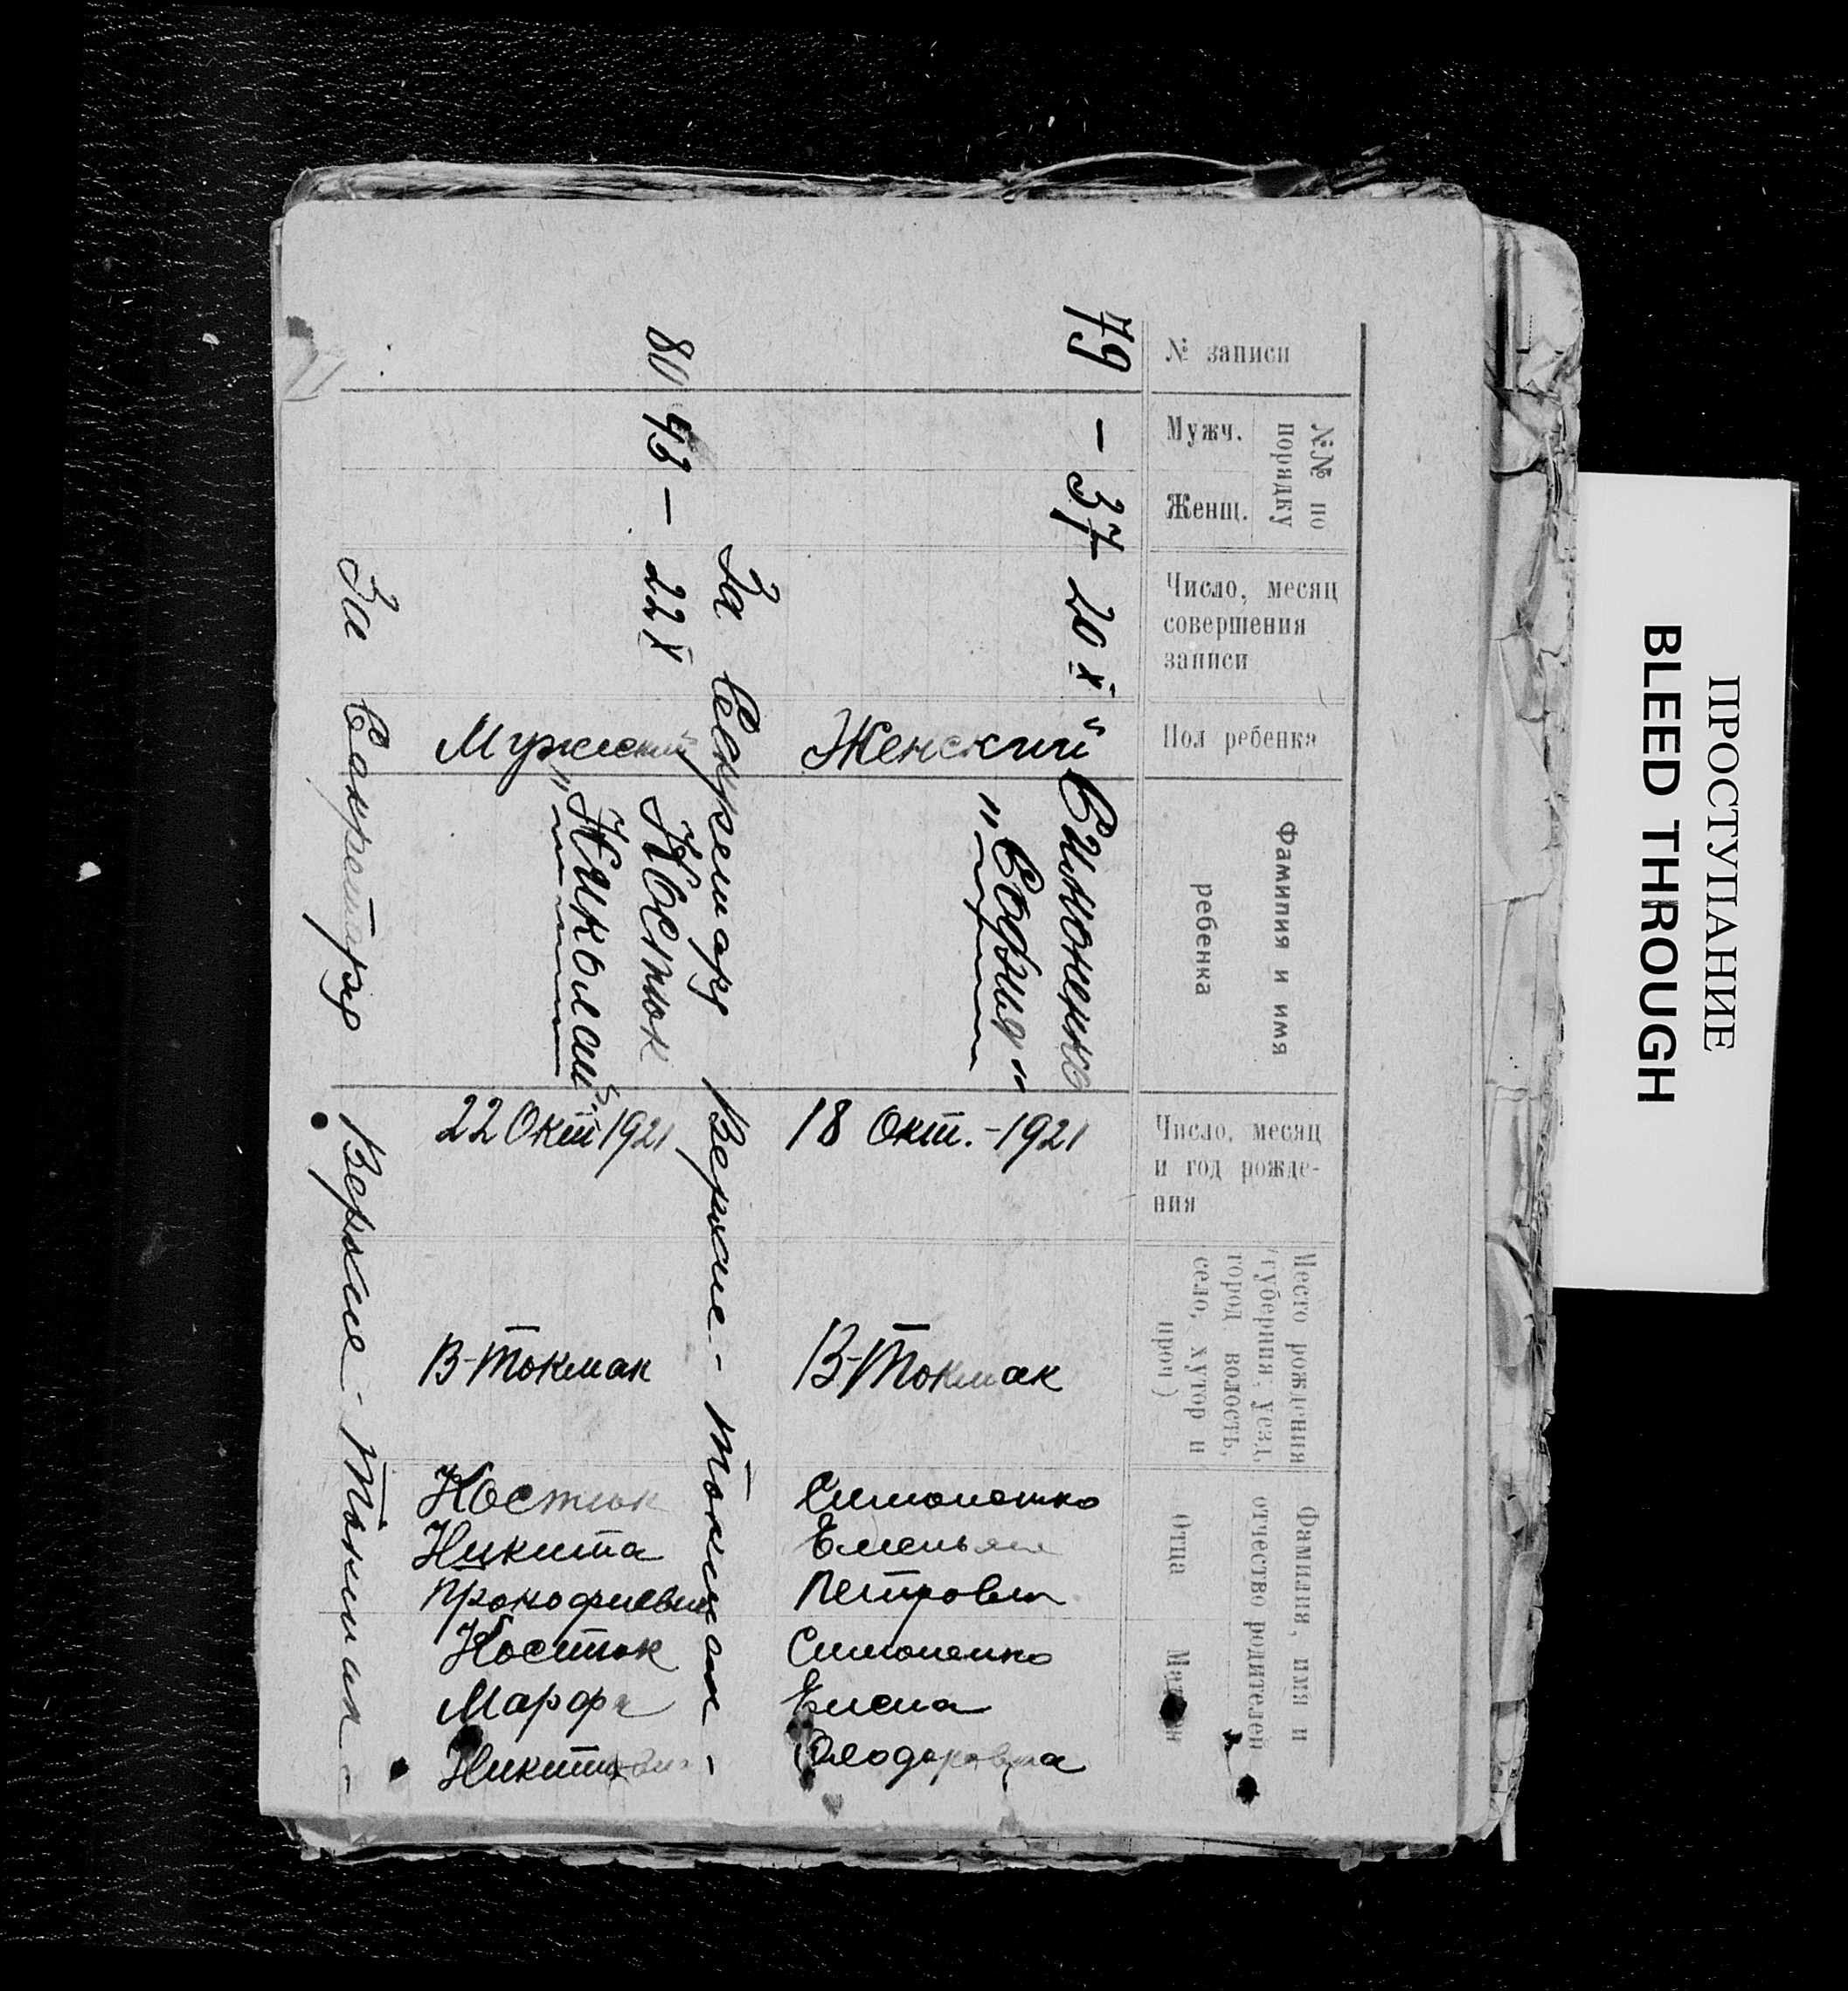 ПРОСТУПАНИЕ
BLEED THROUGH
№ записи
№№ по порядку
Мужч.
Женщ.
Число, месяц
совершения
записи
Пол ребенка
Фамилия и имя
ребенка
Число, месяц
и год рожде-
ния
Место рождения
(губерния, уезд,
город, волость,
село, хутор и
проч)
Фамилия, имя и
отчество родителей
Отца
79 – 37 20 X
Женский
Симоненко
"София"
18 Окт. - 1921
В-Токмак
Симоненко
Емельян
Петрович
Симоненко
Елена
Феодоровна
За Секретаря Верхне - Токмак -
80 43 – 22 X
Мужский
Костюк
"Николай"
22 Окт 1921
В-Токмак
Костюк
Никита
Прокофиевич
Костюк
Марфа
За Секретаря Верхне - Токмак -